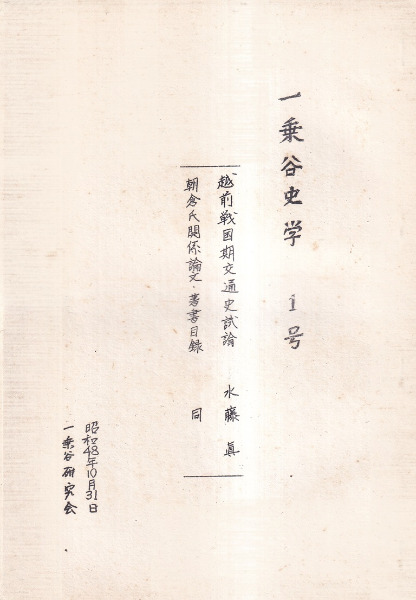 一乗谷史学 1号
越前戦国期交通史試論 水藤真
朝倉氏関係論文・著書目録 同
昭和48年10月31日
一乗谷研究会